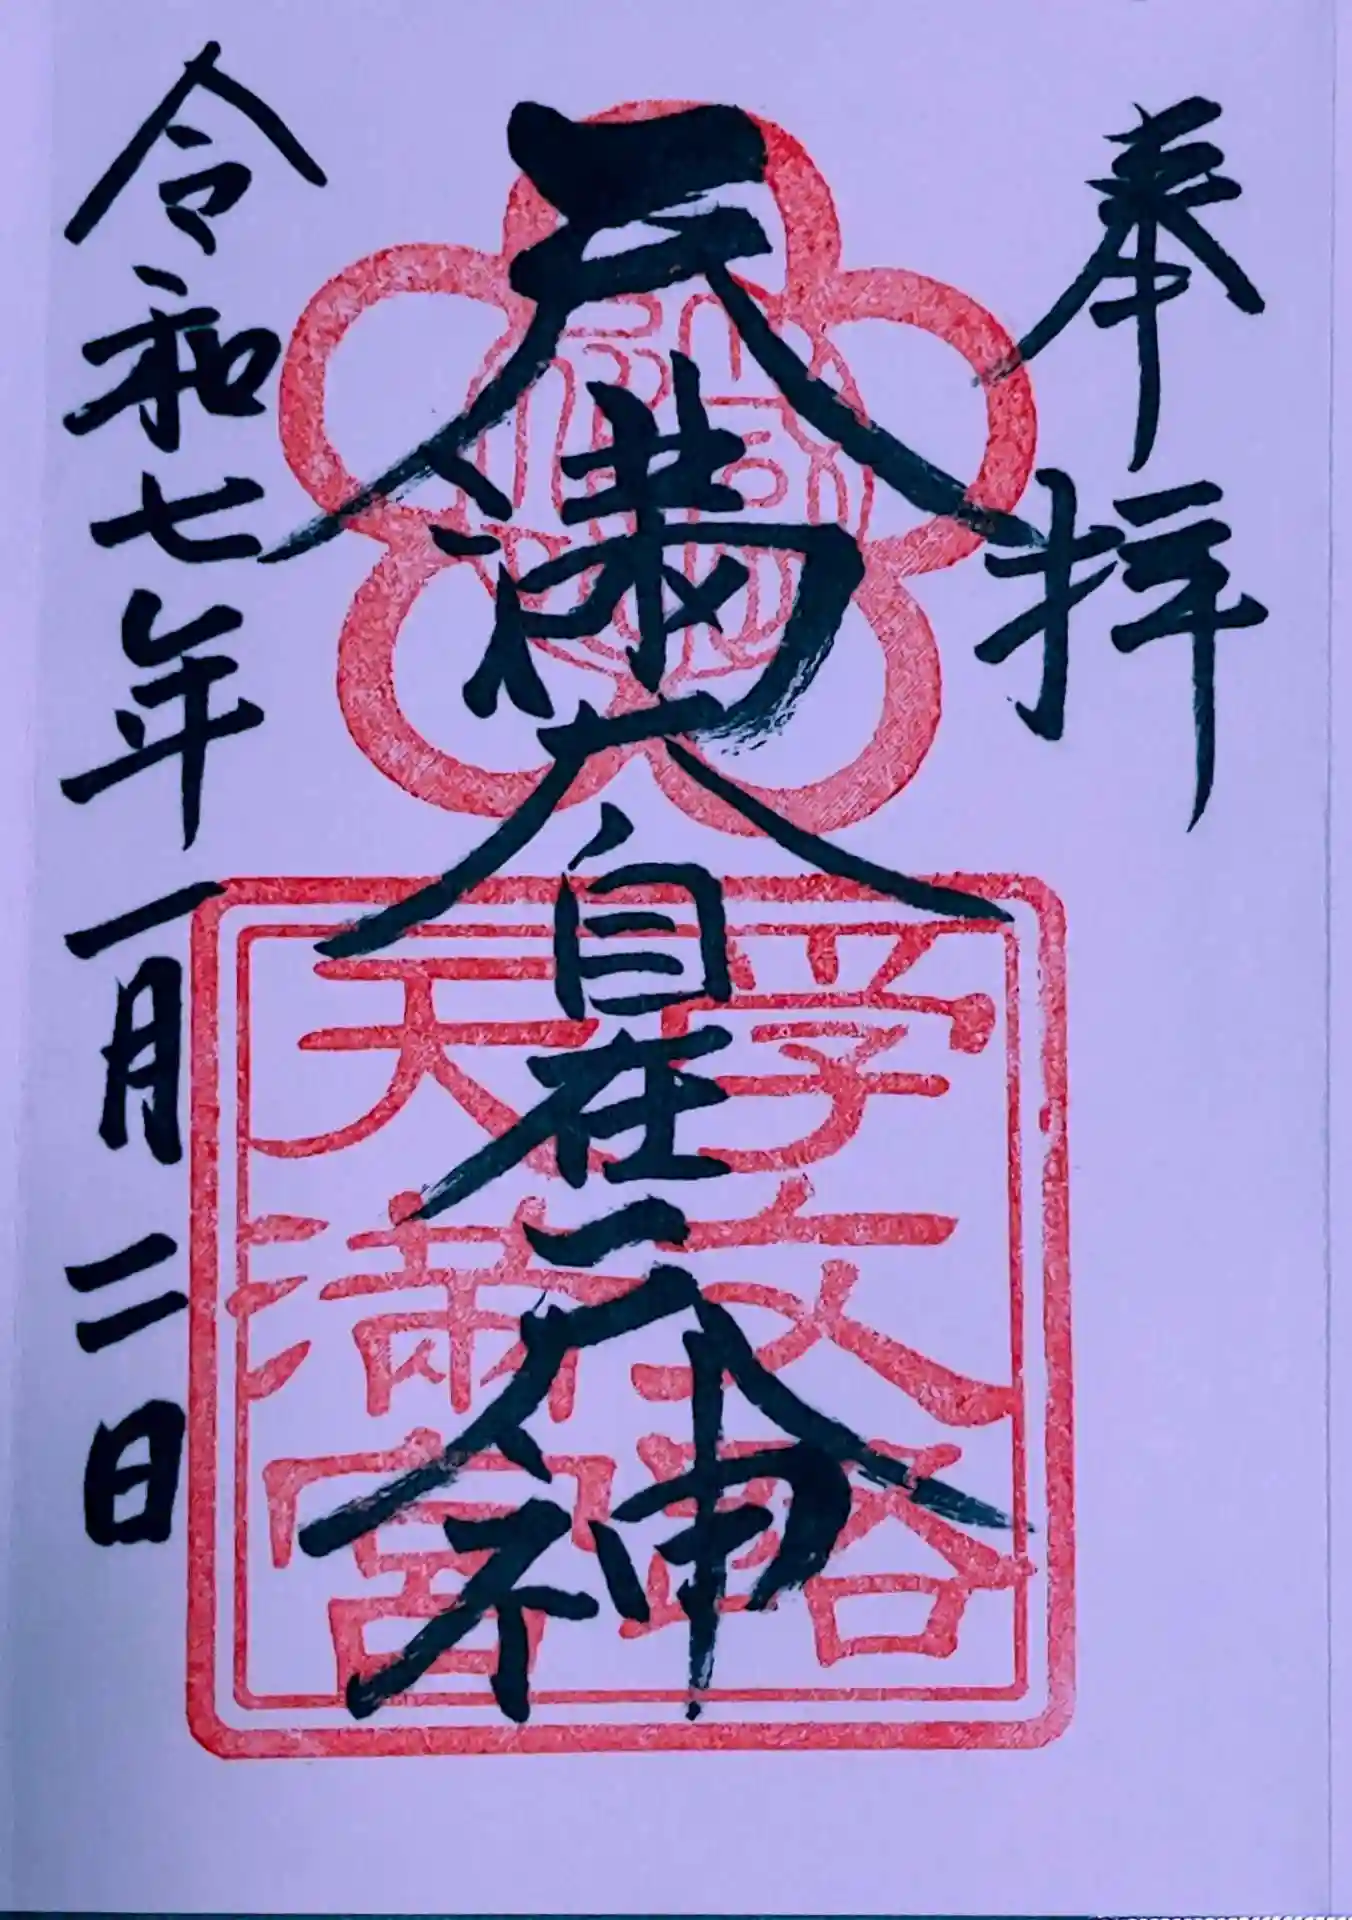 奉拝
天満大自在天神
令和七年一月二日
学文路
天満宮